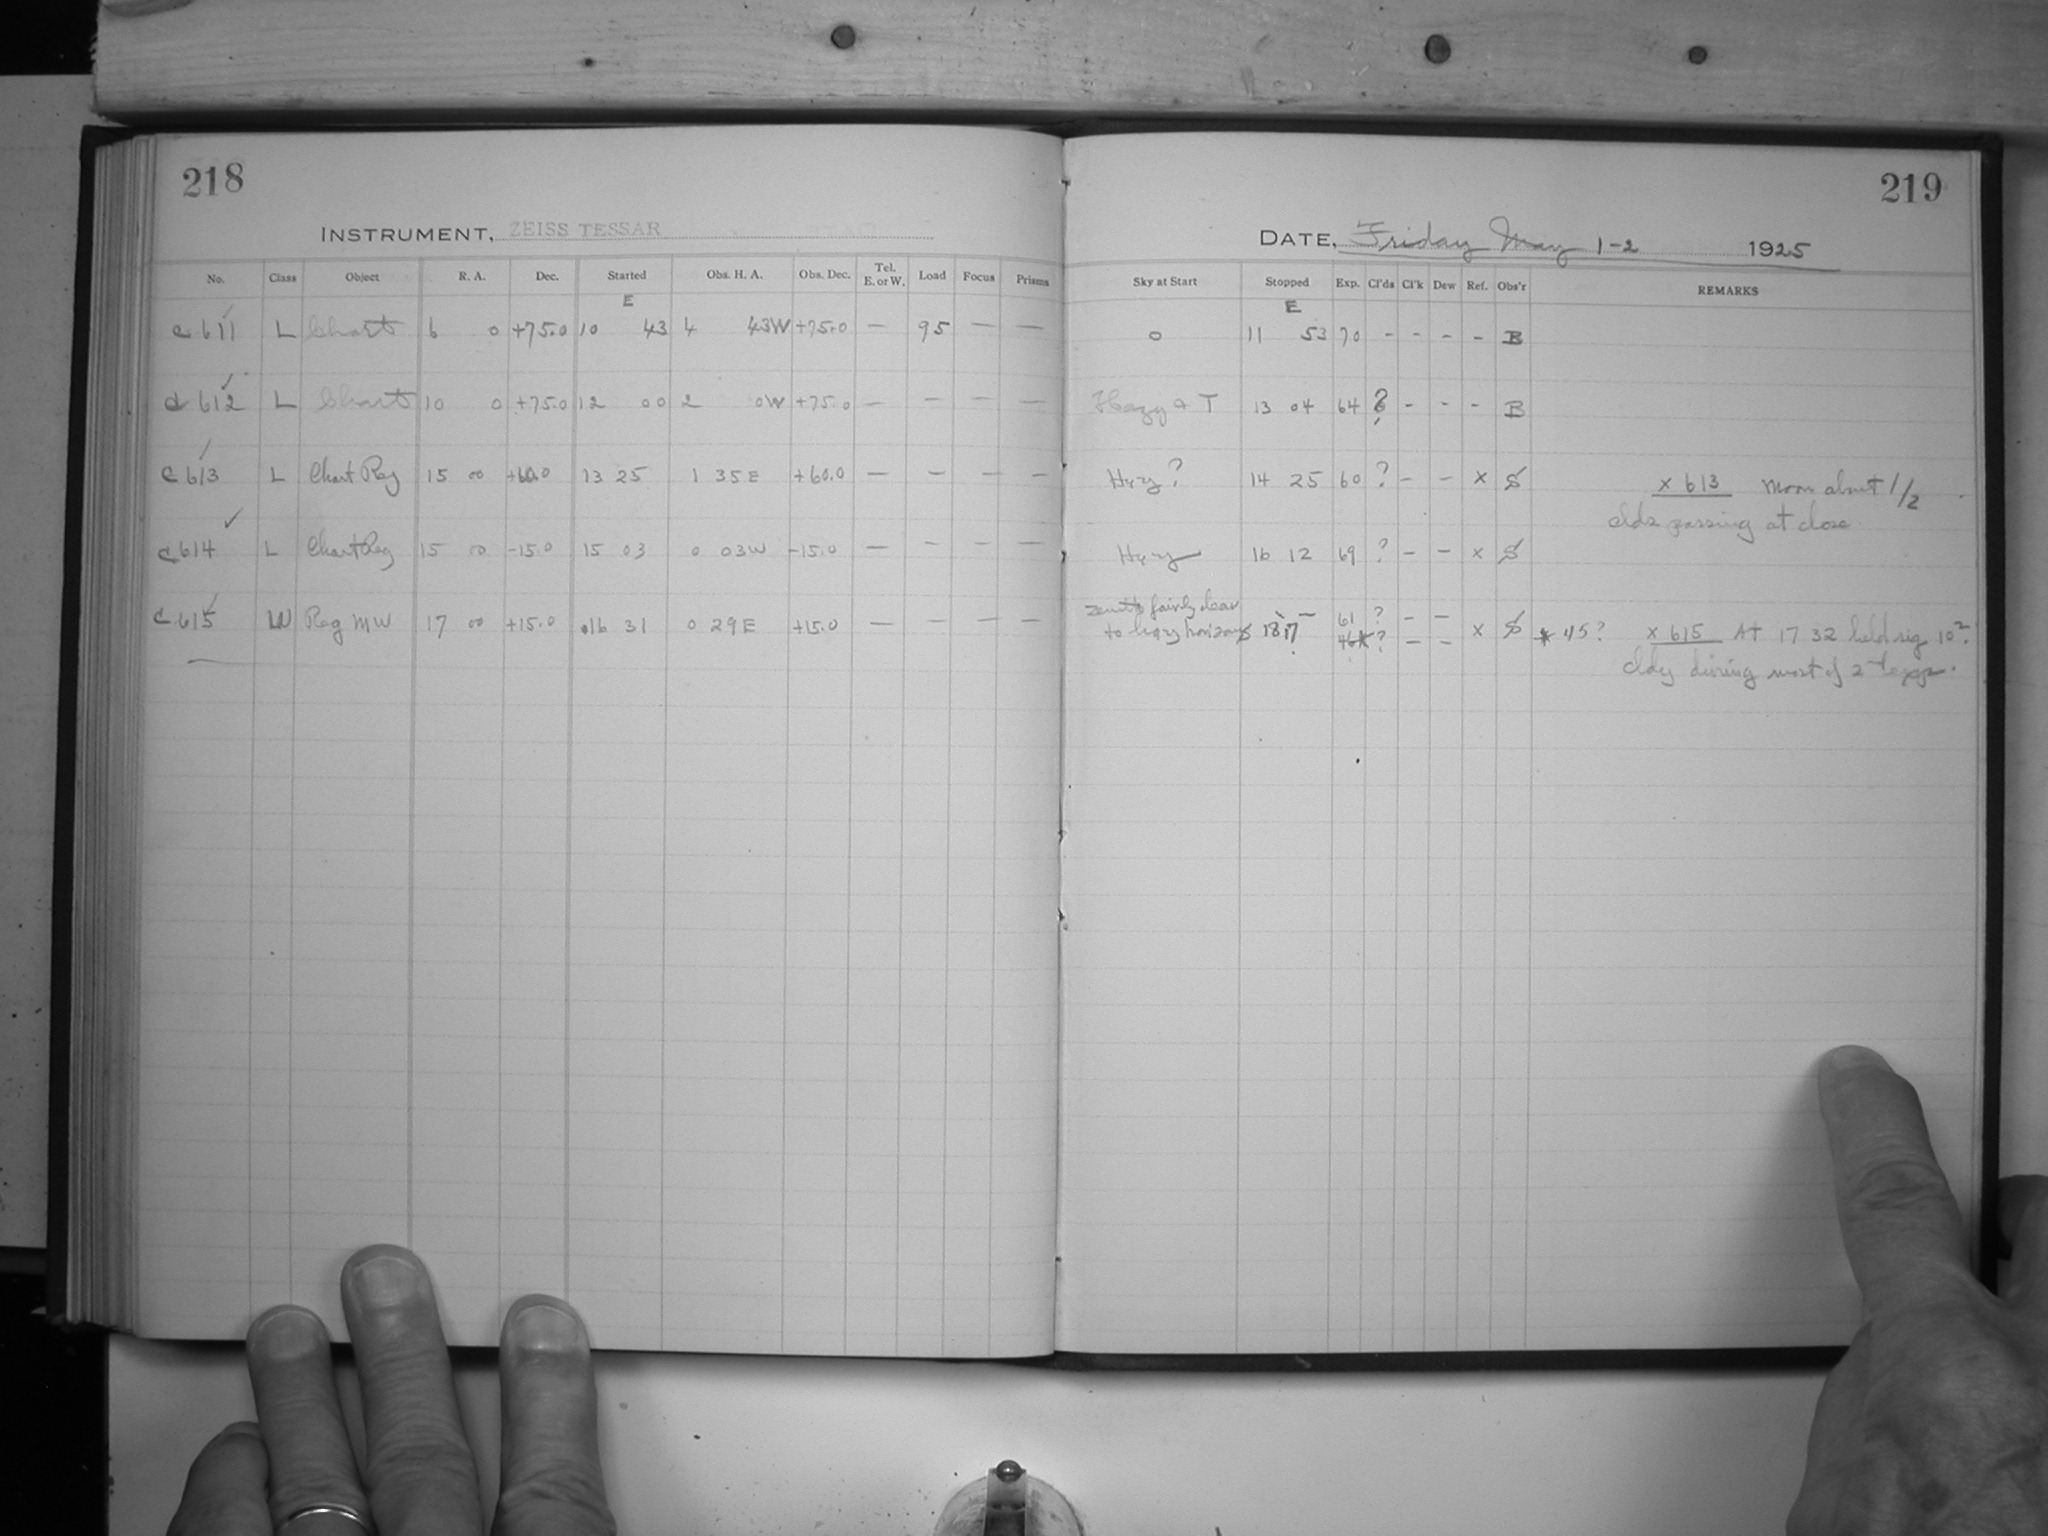 218
INSTRUMENT, ZEISS TESSAR
No. Class Object R. A. Dec. Started Obs. H. A. Obs. Dec. Tel. E. or W. Load Focus Prisms
E
c 611 L Chart 6 0 +75.0 10 43 4 43W +75.0 — 95 — —
c 612 L Chart 10 0 +75.0 12 00 2 0W +75.0 — — — —
c 613 L Chart Reg 15 00 +60.0 13 25 1 35E +60.0 — — — —
c 614 L Chart Reg 15 00 -15.0 15 03 0 03W -15.0 — — — —
c 615 W Reg MW 17 00 +15.0 16 31 0 29E +15.0 — — — —
219
DATE, Friday May 1-2 1925
Sky at Start Stopped Exp. Cl'ds Cl'k Dew Ref. Obs'r REMARKS
E
0 11 53 70 - - - - B
Hazy & T 13 04 64 ? - - - B
Hzy? 14 25 60 ? - - x S x 613 Moon about 1/2
clds passing at close
Hzy 16 12 69 ? - - x S
zenith fairly clear 61 ? - -
to hazy horizons 18 17 46* ? - - x S * 45? x 615 At 17 32 held sig 10
cldy during most of 2nd expr.